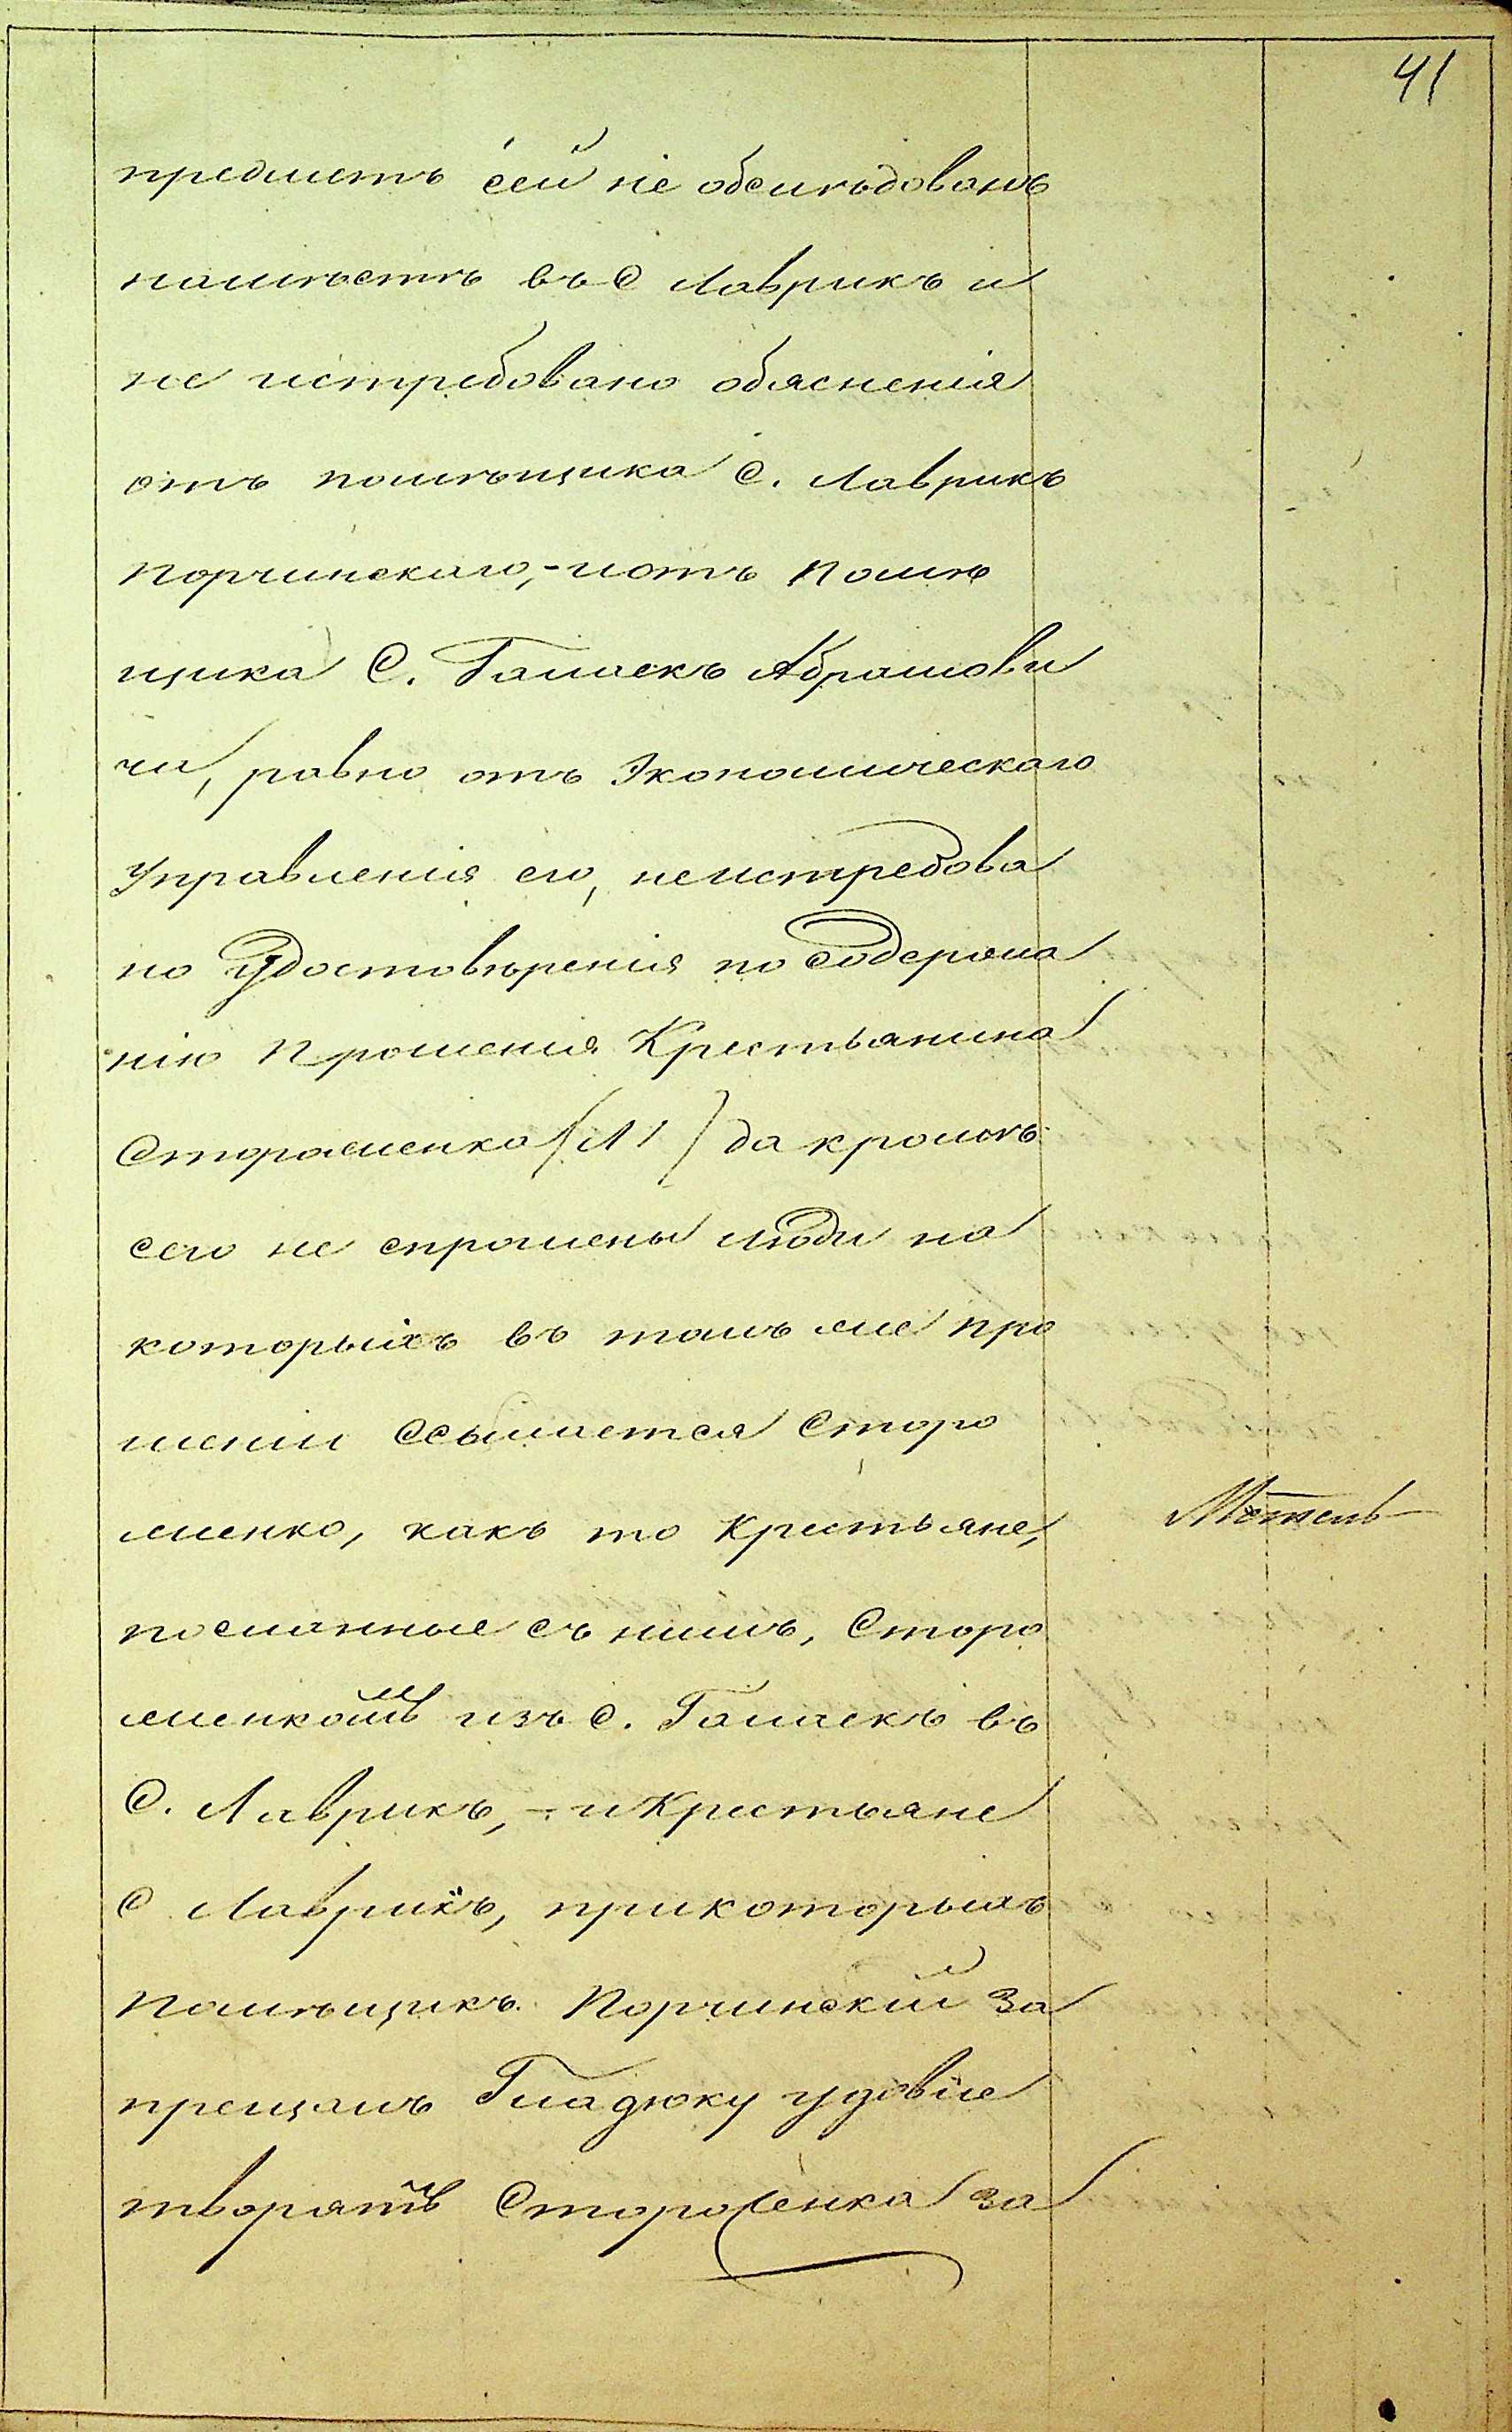 41
предметъ сей не обслѣдованъ
намѣстѣ въ С Лаврикъ и
не истребовано обясненія
отъ помѣщика С. Лаврикъ
Порчинскаго,-иотъ Помѣ
щика С. Гапаекъ Абрамови
чи, равно отъ Экономическаго
Управленія его, неистребова
но Удостовѣренія по Содержа
нію Прошенія Крестьянина
Стороженка (Л 1) да кромѣ
сего не спрошены люди на
которыхъ въ томъ же про
шеніи Ссылается Сторо
женко, какъ то Крестьяне,
посланные съ нимъ, Сторо
женкомъ изъ С. Гапаекъ въ
С. Лаврикъ,-и Крестьяне
С Лаврикъ, прикоторыхъ
Помѣщикъ Порчинскій за
прещалъ Гладюку удовле
творять Стороженка за